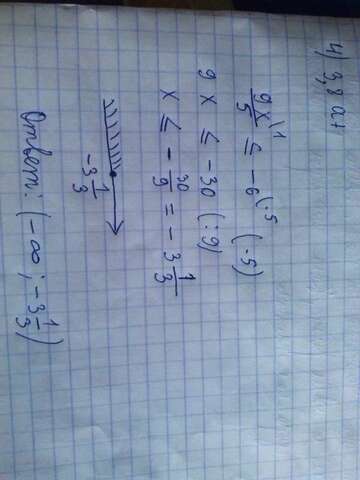 4) 3,8 a +
9x\1/5 ≤ -6\·5 (·5)
9x ≤ -30 (:9)
x ≤ -30/9 = -3 1/3
-3 1/3
Ответ: (-∞; -3 1/3)